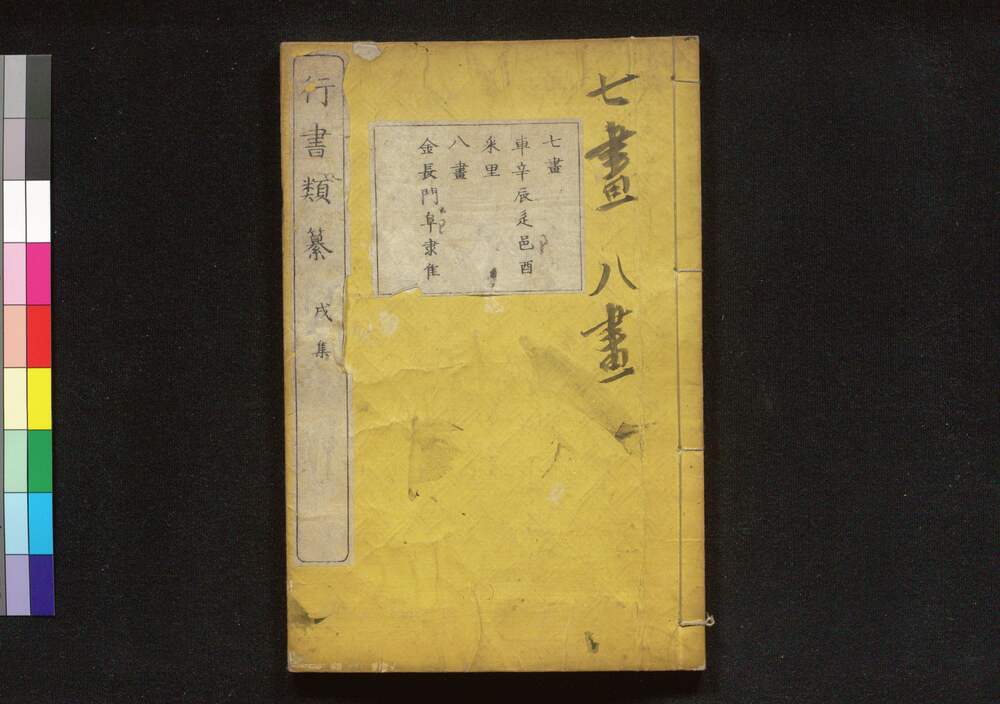 七畫 八畫
七畫
車辛辰辵邑酉
釆里
八畫
金長門阜隶隹
行書類纂 戌集